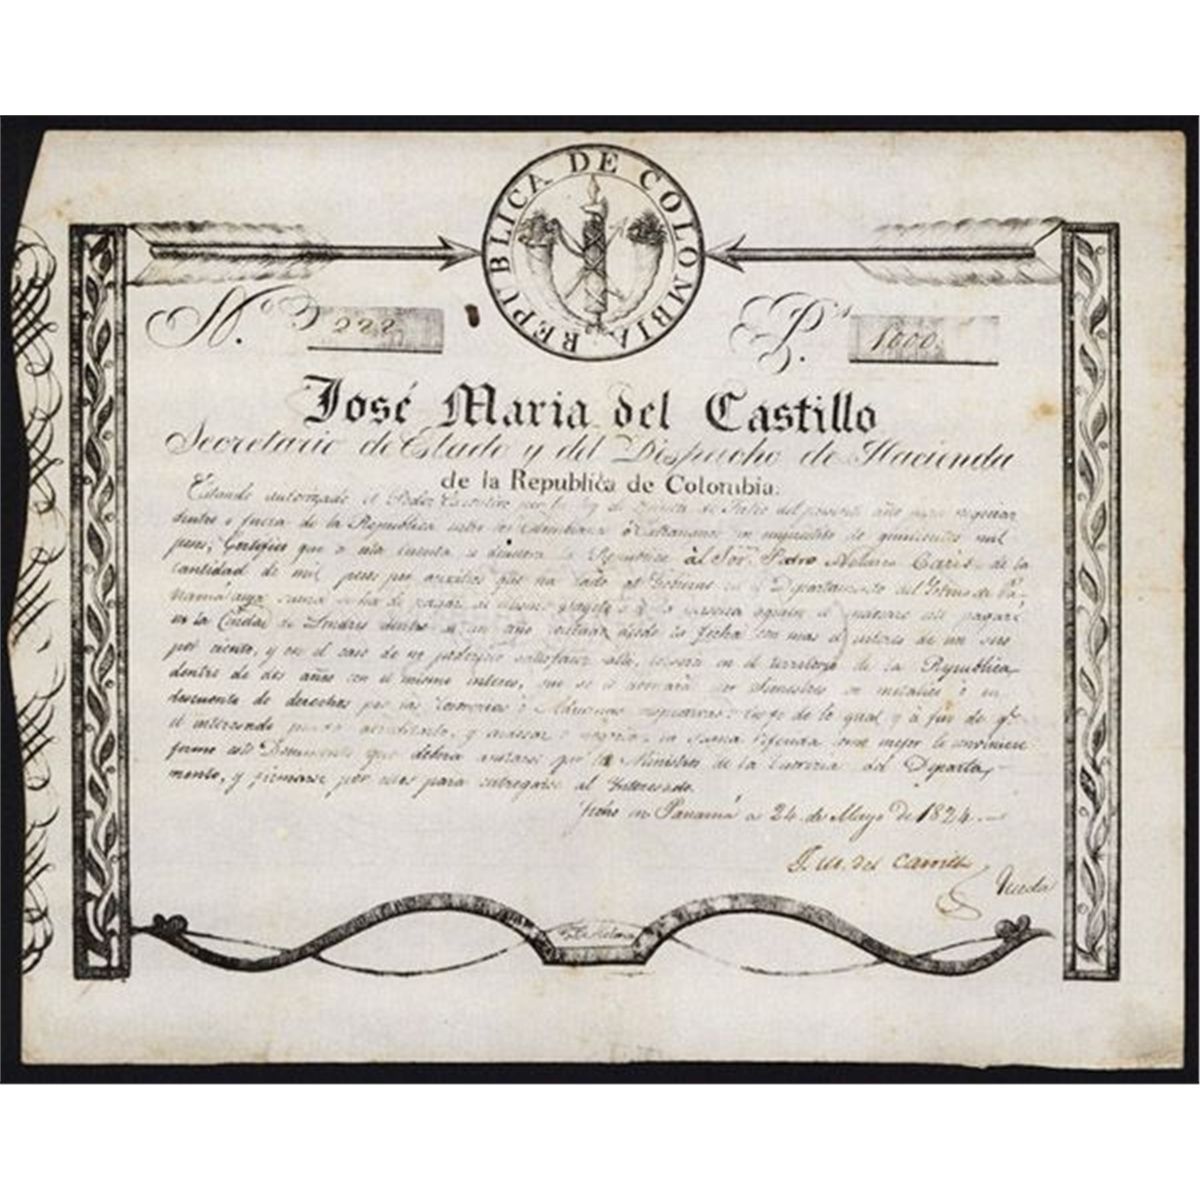 REPUBLICA DE COLOMBIA
N.o 222
P.s 1000
José Maria del Castillo
Secretario de Estado y del Despacho de Hacienda
de la Republica de Colombia.
Estando autorizado el Poder Executivo por la ley de de Julio del presente año para
dentro o fuera de la Republica entre los Colombianos o Estrangeros un emprestito de quinientos mil
pesos, Certifico que a esta cuenta es deudora la Republica al Sor. Pedro de la
cantidad de mil pesos por auxilios que ha dado al Gobierno en el Departamento del Istmo de Pa-
namá cuya suma se ha de pagar al mismo sugeto o a la persona
en la Ciudad de Londres dentro de un año contado desde la fecha con mas el interes de un seis
por ciento, y en el caso de no poderse satisfacer alli, lo será en el territorio de la Republica
dentro de dos años con el mismo interes, que se le abonará por Semestres en metalico o en
descuento de derechos por las Tesorerias o Aduanas respectivas: en fe de lo qual y á fin de q.e
el interesado pueda acreditarlo, y endosar o negociar la suma referida como mejor le conviniere
firmo este Documento que deberá anotarse por los Ministros de la Tesoreria del Departa-
mento, y firmarse por ellos para entregarse al Interesado.
Fecho en Panamá a 24 de Mayo de 1824.
J. M. del Castillo